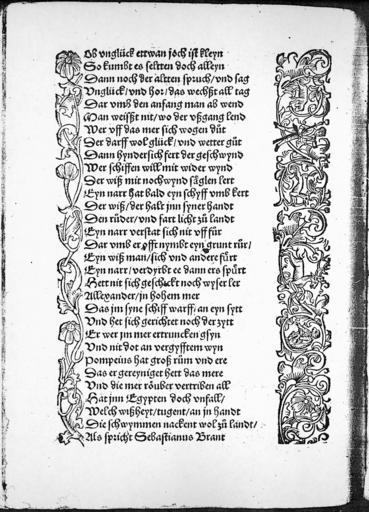 Ob vnglück ettwan joch ist kleyn
So kumbt es seltten doch alleyn
Dann noch der altten spruch / vnd sag
Vnglück / vnd hor / das wechßt all tag
Dar vmb den anfang man ab wend
Man weißt nit / wo der vßgang lend
Wer vff das mer sich wogen düt
Der darff wol glück / vnd wetter güt
Dann hyndersich fert der geschwynd
Wer schiffen will mit wider wynd
Der wiß mit nochwynd säglen lert
Eyn narr hat bald eyn schyff vmb kert
Der wiß / der halt jnn syner handt
Den rüder / vnd fart licht zů landt
Eyn narr verstat sich nit vff für
Dar vmb er offt nymbt eyn grunt rür /
Eyn wiß man / sich vnd andere fürt
Eyn narr / verdyrbt ee dann ers spürt
Hett nit sich geschickt noch wyser ler
Allexander / jn hohem mer
Das jm syne schiff warff / an eyn sytt
Vnd het sich gerichtet noch der zytt
Er wer jm mer ertruncken gsyn
Vnd nit dot an vergyfftem wyn
Pompeius hat groß rům vnd ere
Das er gereyniget hett das mere
Vnd die mer röuber vertriben all
Hat jnn Egypten doch vnfall /
Welch wißheyt / tugent / an jn handt
Die schwymmen nackent wol zů landt /
Als spricht Sebastianus Brant